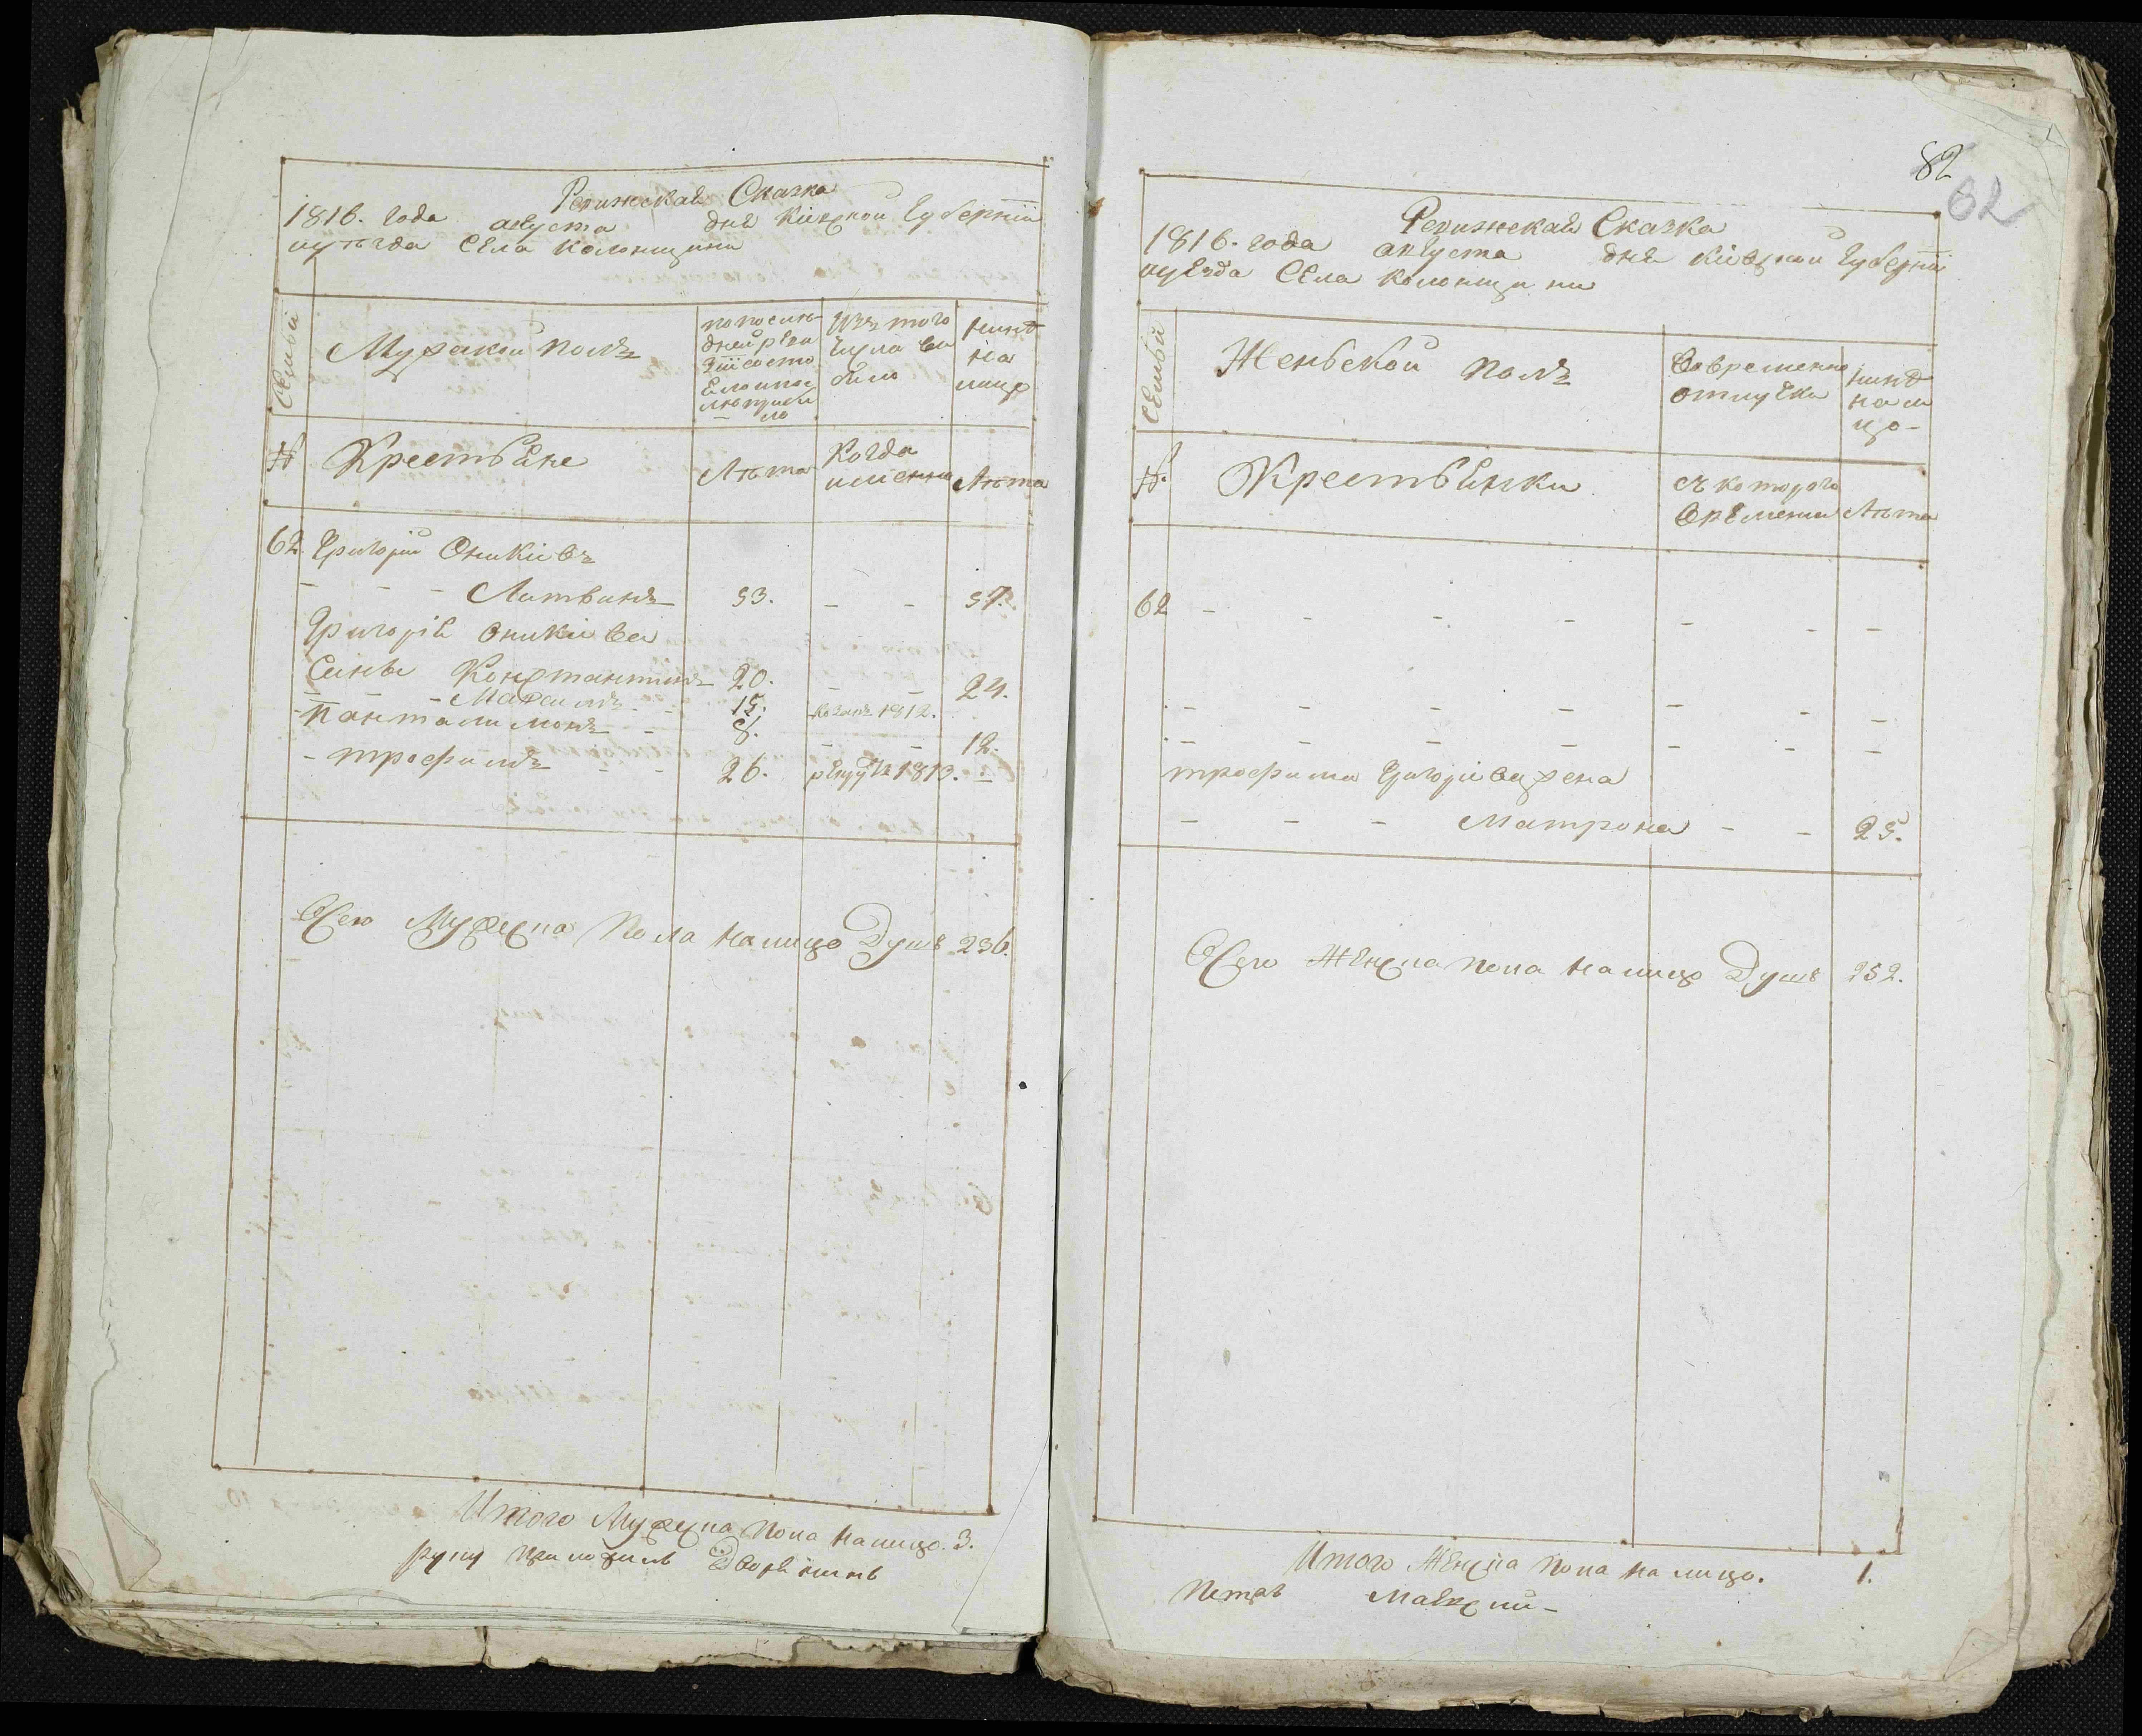 Ревижская Сказка
1816. года августа дня Кіевской Губерніи
и уъзда Села Колонщини
Семьи
Мужской полъ
по послѣ-
дней реви
зіи состо
ело и пос
лѣ прибы
ло
Изъ того
числа вы
было
нинѣ
на
лицо
№
Крестьяне
Лѣта
Когда
именно
Лѣта
62. Григорій Оникіевъ
- - - Литвинъ 53. - - 57.
Григорія Оникіева
Сины Константинъ 20. - - 24.
- - - Максимъ - - 15. козакъ 1812.
- Пантелимонъ - 8. - - 12.
- трофимъ - - 26. рекрутъ 1813. -
Всего Мужеска Пола на лицо Душъ 236.
Итого Мужеска пола на лицо. 3.
руку приложилъ Дворянинъ
82
62
Ревижская Сказка
1816. года августа дня Кіевской Губерніи
и уезда Села Колонщини
Семьи
Женьской полъ
Во временно
отлучки
нинѣ
на ли
цо-
№.
Крестьянки
съ которого
времени
Лѣта
62 - - - - - - -
- - - - - - -
- - - - - - -
трофима Григоріева жена
- - - Матрона - - 25.
Всего Женска пола на лицо Душъ 252.
Итого Женска пола на лицо. 1.
Петръ